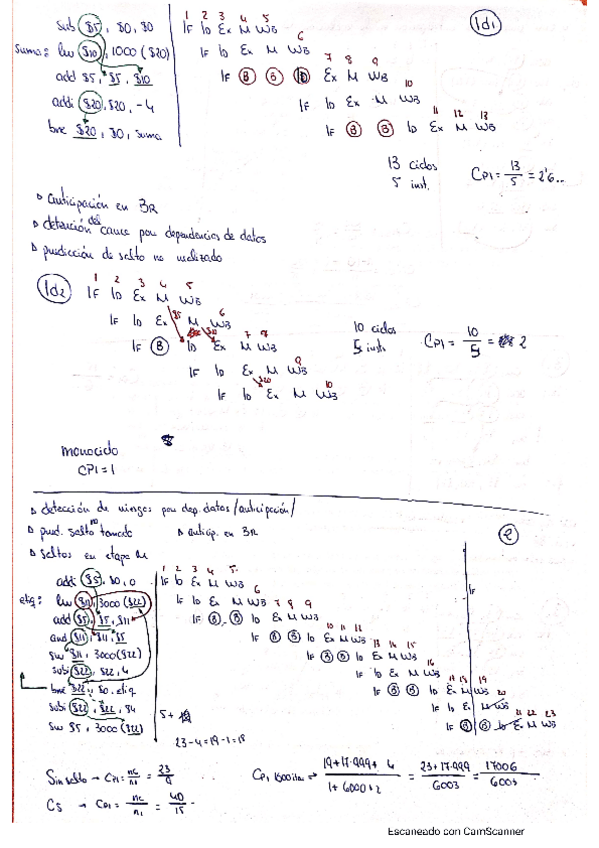 1d1
1 2 3 4 5
sub $5, $0, $0 IF ID Ex M WB
6
suma: lw $10, 1000 ($20) IF ID Ex M WB
7 8 9
add $5, $5, $10 IF B B ID Ex M WB
10
addi $20, $20, -4 IF ID Ex M WB
11 12 13
bne $20, $0, suma IF B B ID Ex M WB
13 ciclos
5 inst.
CPI = 13/5 = 2'6...
▷ anticipación en BR
▷ detención del cauce por dependencias de datos
▷ predicción de salto no realizado
1d2
1 2 3 4 5
IF ID Ex M WB
6
IF ID Ex M WB
$5
7 8
IF B ID Ex M WB
9
IF ID Ex M WB
$20 10
IF ID Ex M WB
10 ciclos
5 inst.
CPI = 10/5 = 2
monociclo
CPI = 1
▷ detección de riesgos por dep. datos /anticipación/
▷ pred. salto no tomado ▷ anticip. en BR
▷ saltos en etapa M
2
1 2 3 4 5
addi $5, $0, 0 IF ID Ex M WB
6
etiq: lw $11, 3000 ($22) IF ID Ex M WB
7 8 9
add $5, $5, $11 IF B B ID Ex M WB
10 11 12
and $11, $11, $5 IF B B ID Ex M WB
13 14 15
sw $11, 3000($22) IF B B ID Ex M WB
16
subi $22, $22, 4 IF ID Ex M WB
17 18 19
bne $22, $0, etiq IF B B ID Ex M WB
20
subi $22, $22, $4 IF ID Ex M WB
21 22 23
sw $5, 3000 ($22) IF B B ID Ex M WB
IF
5 +
23-4=19-1=18
Sin salto → CPI = nc/ni = 23/9
CPI = 19+17·999+4 / 1+6000+2 = 23+17·999 / 6003 = 17006 / 6003
CS → CPI = nc/ni = 40/15
Escaneado con CamScanner